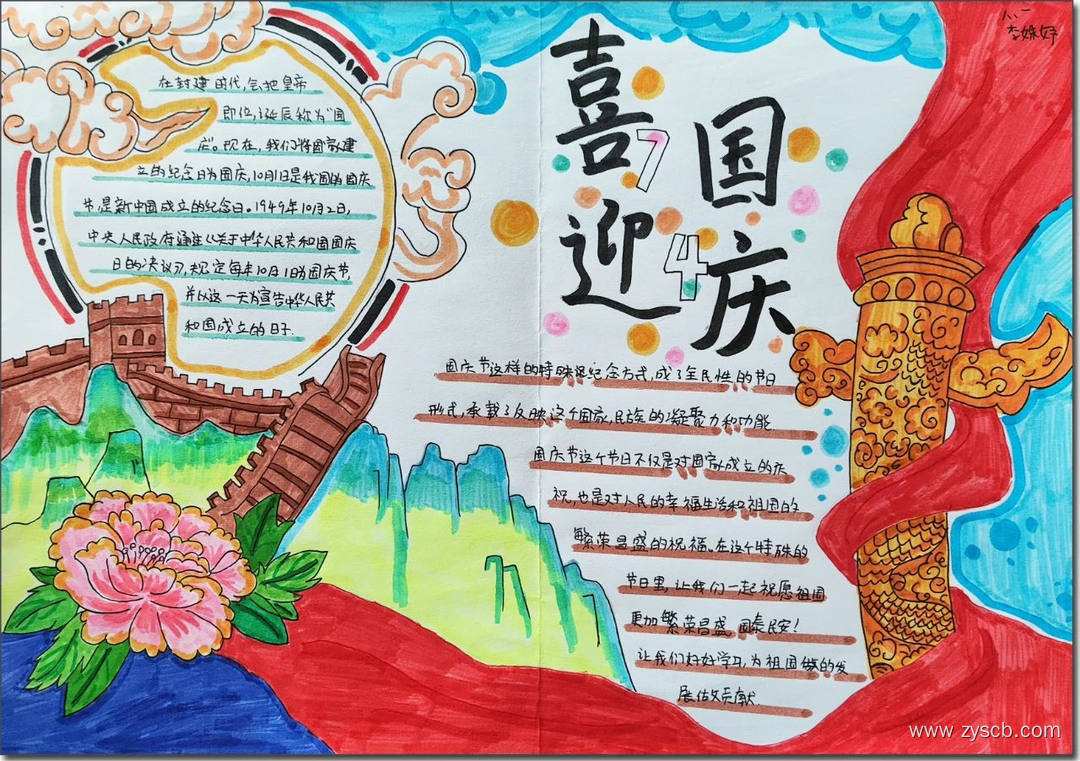 八一
李姝妤
喜迎
国庆
74
在封建时代,会把皇帝
即位,诞辰称为“国
庆”。现在,我们将国家建
立的纪念日为国庆,10月1日是我国的国庆
节,是新中国成立的纪念日。1949年10月2日,
中央人民政府通过《关于中华人民共和国国庆
日的决议》,规定每年10月1日为国庆节,
并以这一天为宣告中华人民共
和国成立的日子.
国庆节这样的特殊纪念方式,成了全民性的节日
形式,承载了反映这个国家,民族的凝聚力和功能
国庆节这个节日不仅是对国家成立的庆
祝,也是对人民的幸福生活和祖国的
繁荣昌盛的祝福。在这个特殊的
节日里,让我们一起祝愿祖国
更加繁荣昌盛,国泰民安!
让我们好好学习,为祖国做的发
展做贡献.
www.zyscb.com